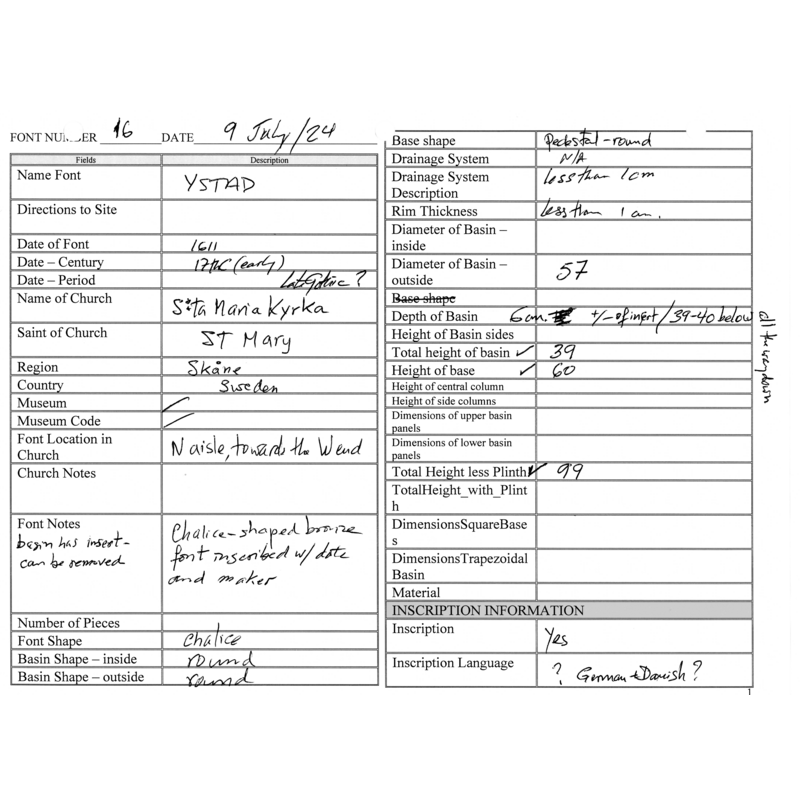 FONT NUMBER 16 DATE 9 July/24
Fields Description
Name Font YSTAD
Directions to Site
Date of Font 1611
Date – Century 17thC (early)
Date – Period Late Gothic?
Name of Church S:ta Maria Kyrka
Saint of Church ST Mary
Region Skåne
Country Sweden
Museum
Museum Code
Font Location in
Church N aisle, towards the W end
Church Notes
Font Notes
basin has insert -
can be removed
Chalice-shaped bronze
font inscribed w/ date
and maker
Number of Pieces
Font Shape chalice
Basin Shape – inside round
Basin Shape – outside round
Base shape Pedestal-round
Drainage System N/A
Drainage System
Description less than 1cm
Rim Thickness less than 1 cm.
Diameter of Basin –
inside
Diameter of Basin –
outside 57
Base shape
Depth of Basin 6cm. +/- of insert / 39-40 below
all the way down
Height of Basin sides
Total height of basin ✓ 39
Height of base ✓ 60
Height of central column
Height of side columns
Dimensions of upper basin
panels
Dimensions of lower basin
panels
Total Height less Plinth ✓ 99
TotalHeight_with_Plint
h
DimensionsSquareBase
s
DimensionsTrapezoidal
Basin
Material
INSCRIPTION INFORMATION
Inscription Yes
Inscription Language ? German + Danish?
1